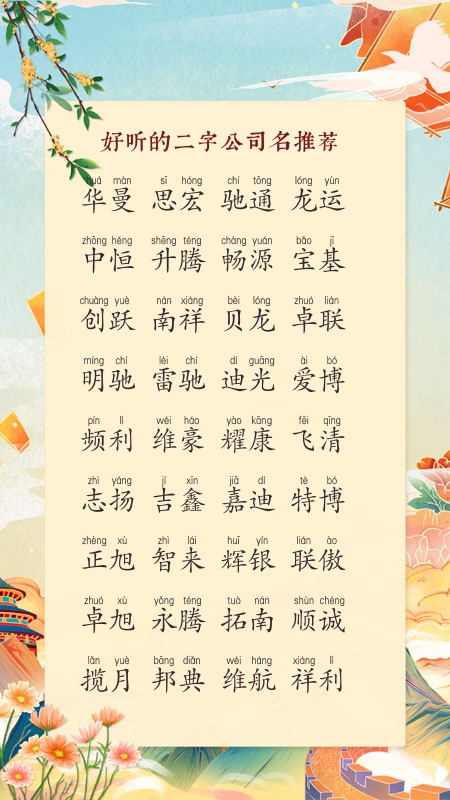 好听的二字公司名推荐
huá màn sī hóng chí tōng lóng yùn
华曼 思宏 驰通 龙运
zhōng héng shēng téng chàng yuán bǎo jī
中恒 升腾 畅源 宝基
chuàng yuè nán xiáng bèi lóng zhuó lián
创跃 南祥 贝龙 卓联
míng chí léi chí dí guāng ài bó
明驰 雷驰 迪光 爱博
pín lì wéi háo yào kāng fēi qīng
频利 维豪 耀康 飞清
zhì yáng jí xīn jiā dí tè bó
志扬 吉鑫 嘉迪 特博
zhèng xù zhì lái huī yín lián ào
正旭 智来 辉银 联傲
zhuó xù yǒng téng tuò nán shùn chéng
卓旭 永腾 拓南 顺诚
lǎn yuè bāng diǎn wéi háng xiáng lì
揽月 邦典 维航 祥利